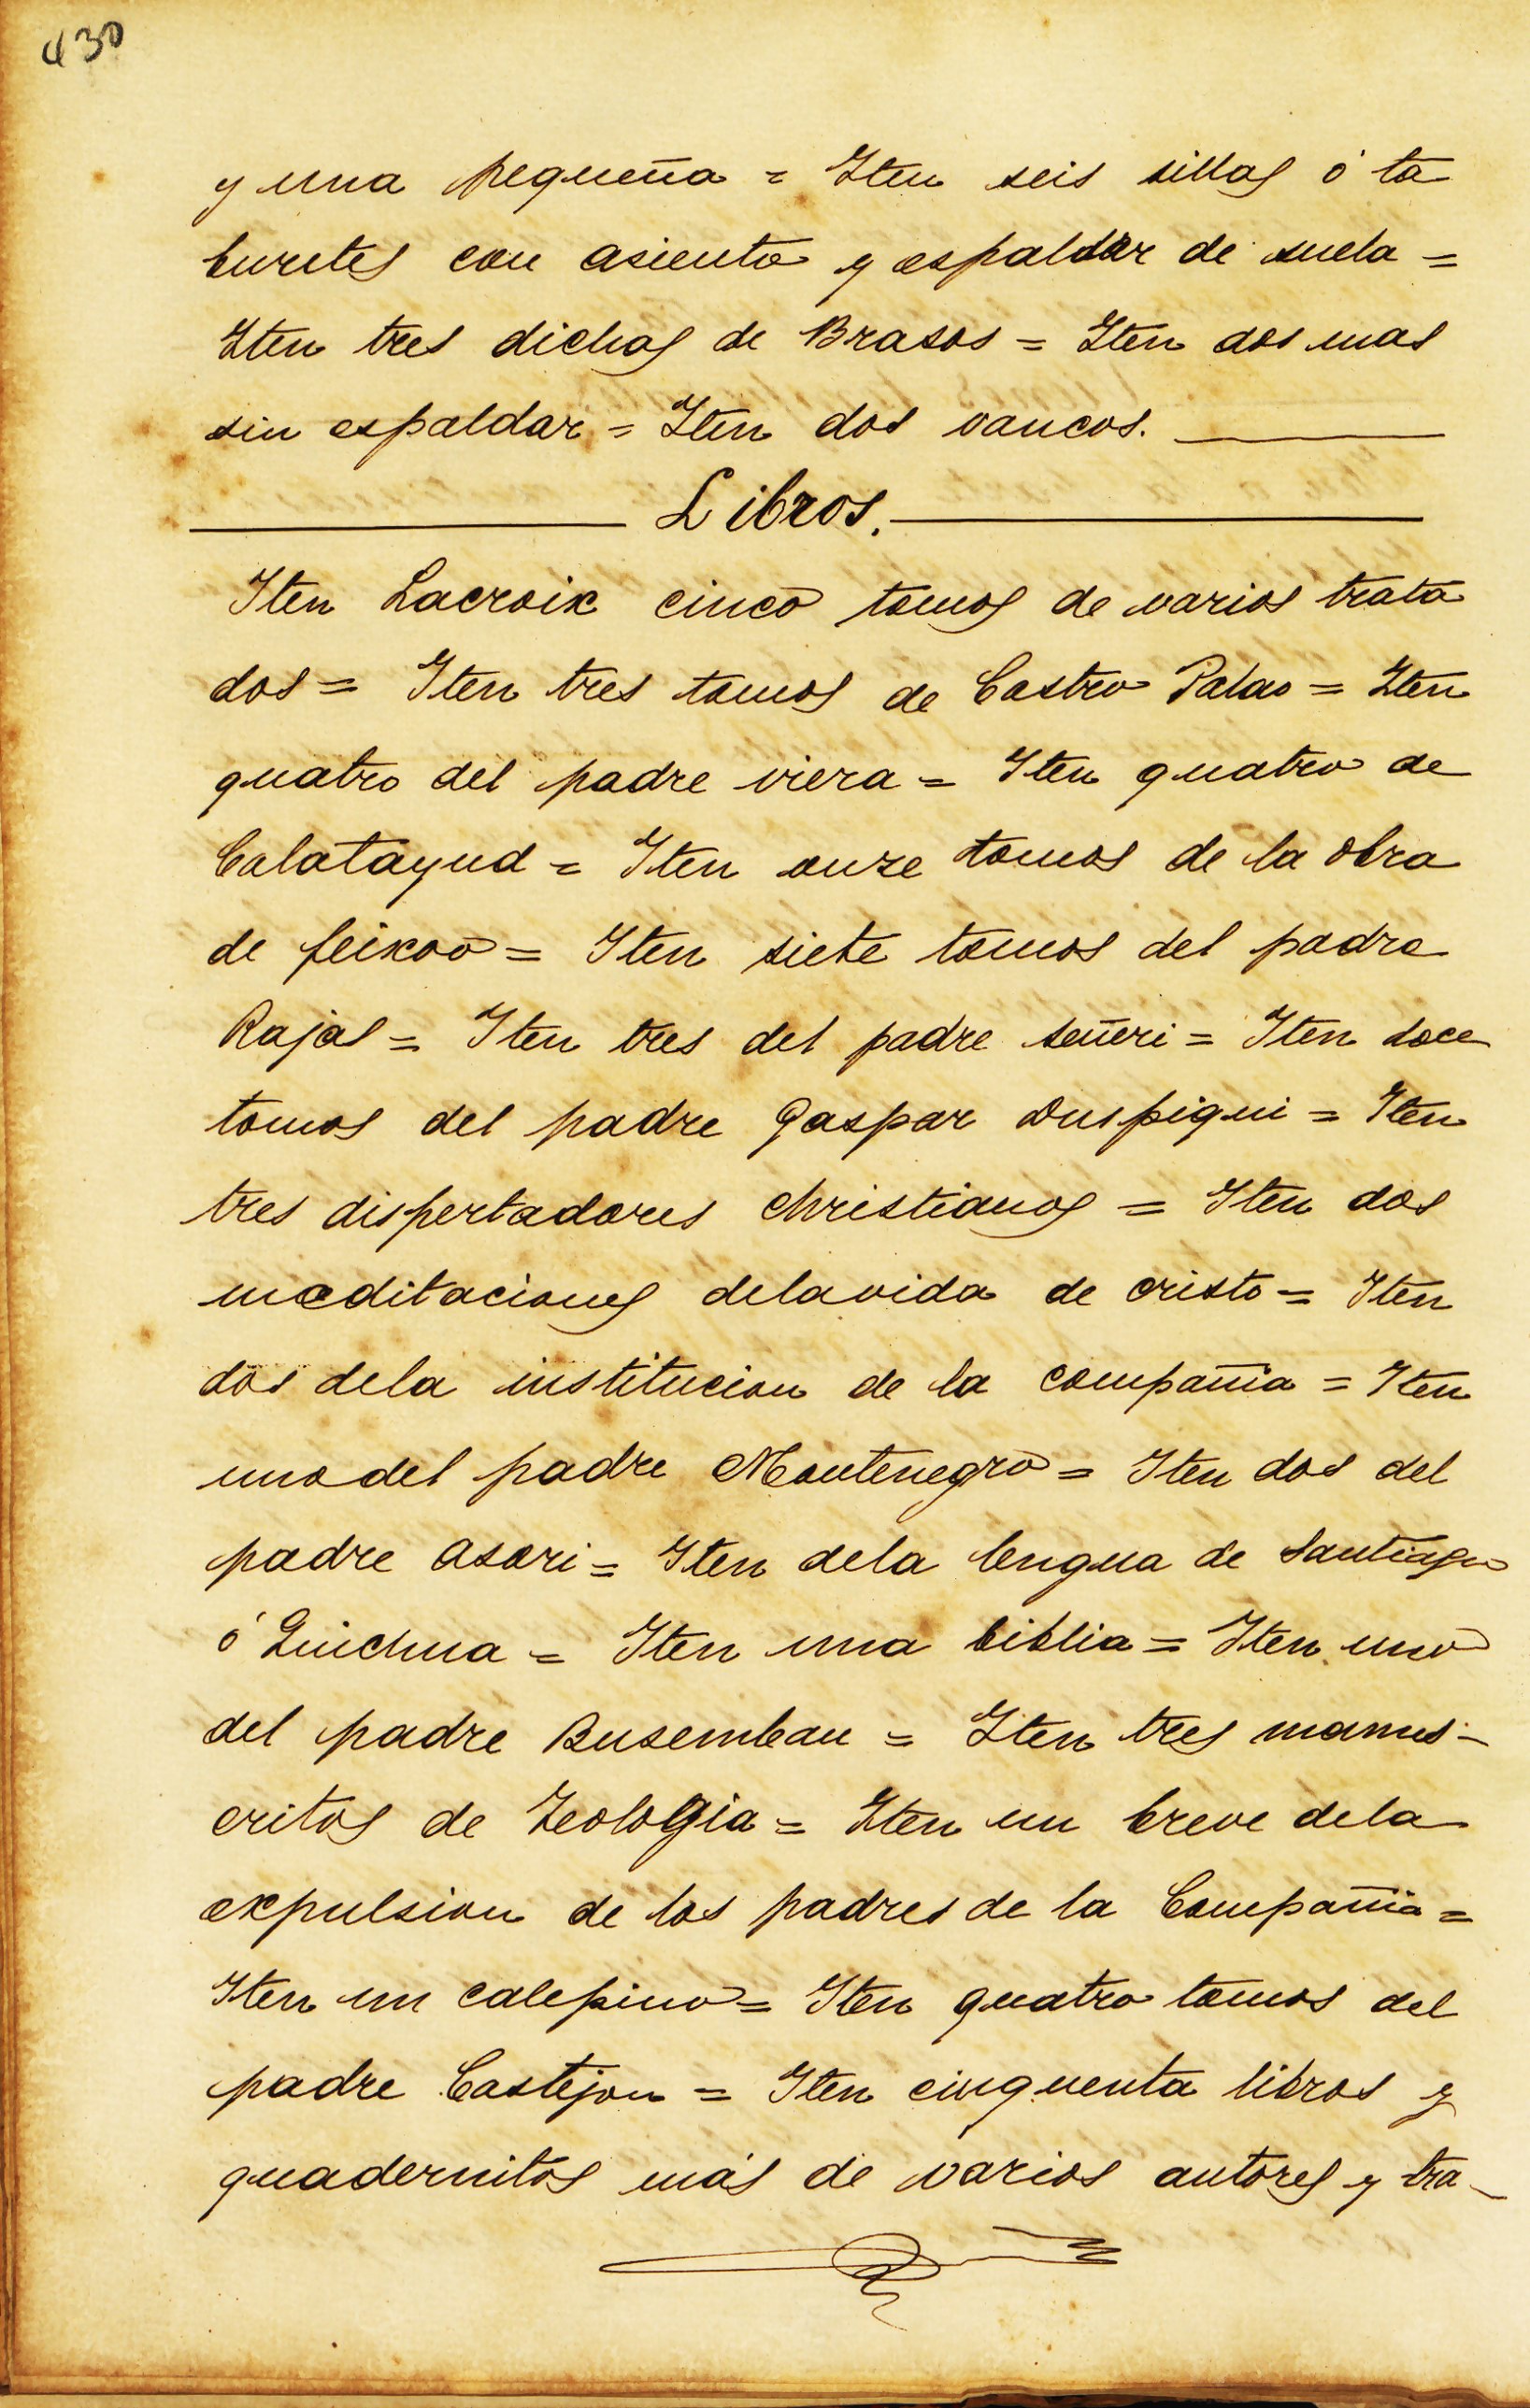 430
y una pequeña = Iten seis sillas ó ta
buretes con asiento y espaldar de suela =
Iten tres dichas de Brasos = Iten dos mas
sin espaldar = Iten dos vancos.
Libros.
Iten Lacroix cinco tomos de varios trata
dos = Iten tres tomos de Castro Palao = Iten
quatro del padre viera = Iten quatro de
Calatayud = Iten onze tomos de la obra
de feixoo = Iten siete tomos del padre
Rajas = Iten tres del padre señeri = Iten doce
tomos del padre Gaspar Duspiqui = Iten
tres dispertadores christianos = Iten dos
meditaciones delavida de cristo = Iten
dos dela institucion de la compañia = Iten
uno del padre Montenegro = Iten dos del
padre asori = Iten dela lengua de Santiago
ó Quichua = Iten una biblia = Iten uno
del padre Busembau = Iten tres manus-
critos de Teologia = Iten un breve dela
expulsion de los padres de la Compañia =
Iten un calepino = Iten quatro tomos del
padre Castejon = Iten cinquenta libros y
quadernitos más de varios autores y tra-